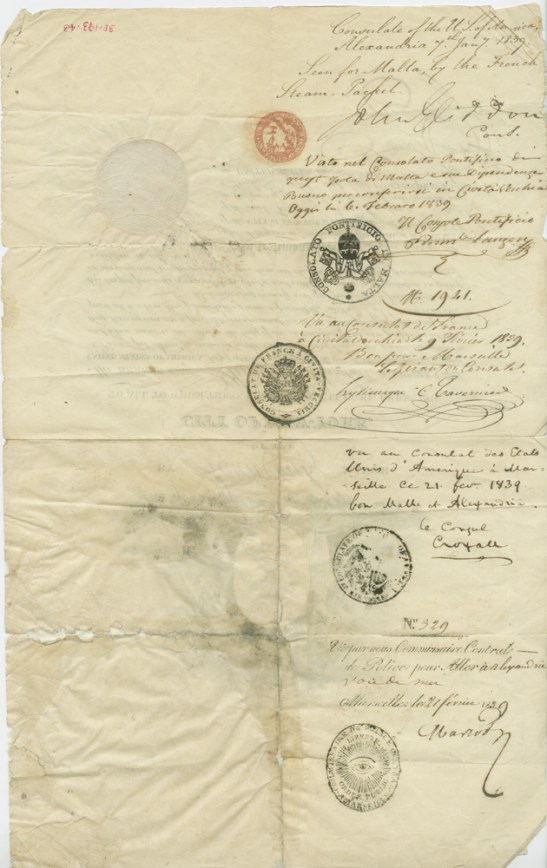 Consulate of the U.S. of America,
Alexandria 7th Jany. 1839.
Seen for Malta, by the French
Steam-Packet.
John Gliddon
Cons.
Visto nel Consolato Pontificio di
quest' Isola di Malta e sue Dipendenze
Buono per conferirsi in Civitavecchia
Oggi li 6 Febraro 1839
Il Console Pontificio
CONSOLATO PONTIFICIO IN MALTA
No. 1941.
Vu au Consulat de France
à Civitavecchia le 9 Février 1839.
Bon pour Marseille
Le Gérant du Consulat
CONSULAT DE FRANCE À CIVITA-VECCHIA
Vu au Consulat des Etats
Unis d'Amérique à Mar-
seille ce 21 fevr 1839
bon Malte et Alexandrie.
le Consul
Croxall
No. 329
Vu par nous Commissaire Central
de Police pour Aller à Alexandrie
voie de mer
Marseille le 21 février 1839
LIBERTÉ
ORDRE PUBLIC